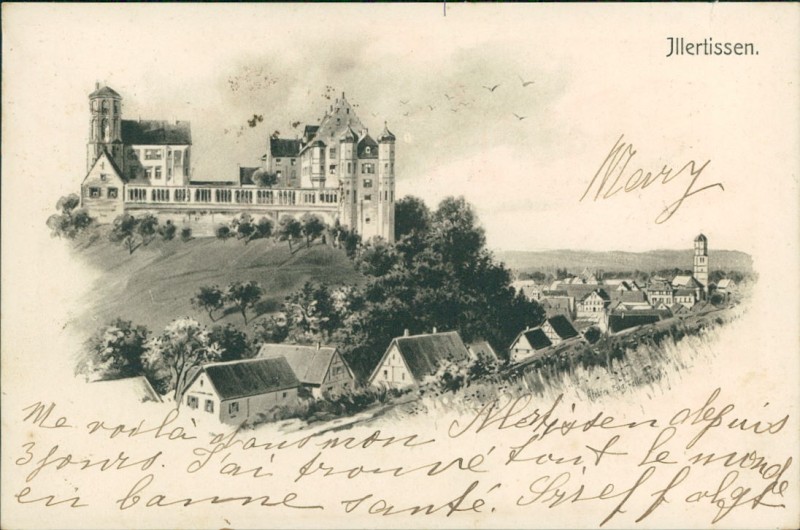 Illertissen.
Mary
Me voilà dans mon Illertissen depuis
3 jours. J'ai trouvé tout le monde
en bonne santé. Brief folgt